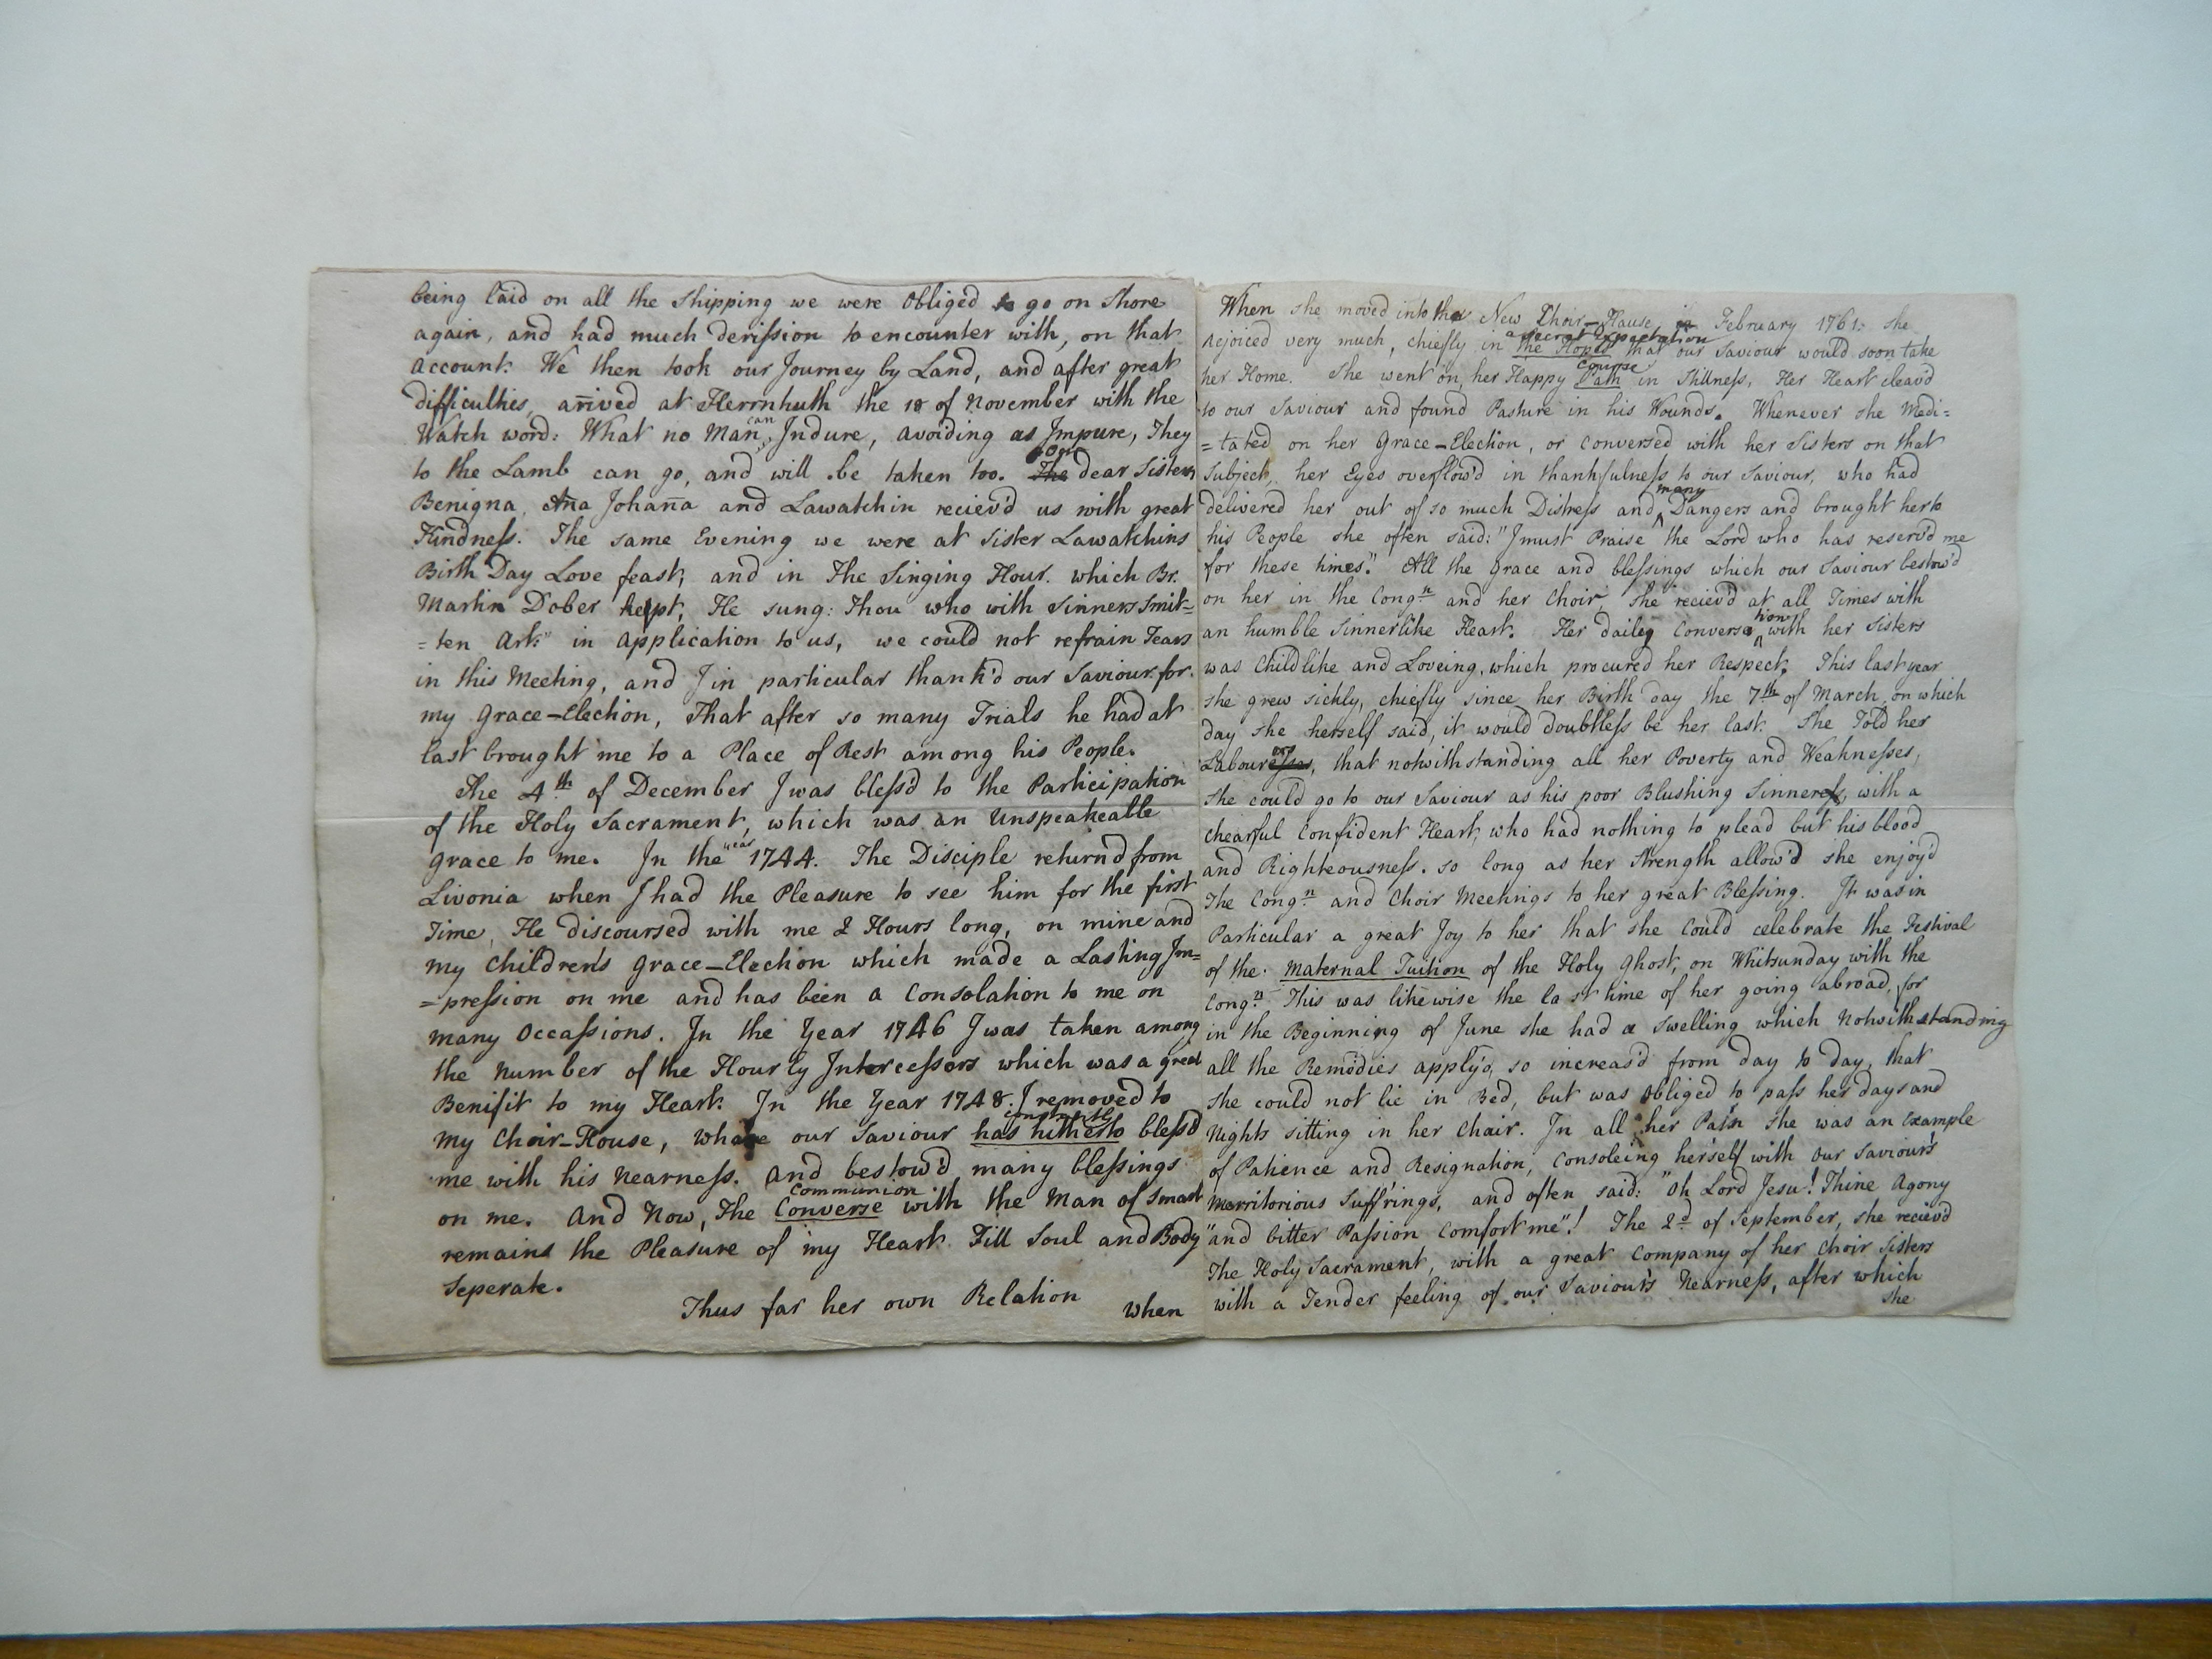 being laid on all the Shipping we were Obliged to go on Shore
again, and had much derission to encounter with, on that
account. We then took our Journey by Land, and after great
difficulties, arived at Herrnhuth the 18 of November with the
can
Watch word: What no Man Indure, avoiding as Impure, They
to the Lamb can go, and will be taken too. The dear Sisters
Benigna, Aña Johaña and Lawatchin reciev'd us with great
Kindness. The same Evening we were at Sister Lawatchins
Birth Day Love feast; and in The Singing Hour. which Br.
Martin Dober kept, He sung: Thou who with Sinners Smit=
=ten Art" in application to us, we could not refrain Tears
in this Meeting, and I in particular thank'd our Saviour for
my Grace-Election, That after so many Trials he had at
last brought me to a Place of Rest among his People.
The 4th of December I was bless'd to the Participation
of the Holy Sacrament, which was an Unspeakeable
year
grace to me. In the 1744. The Disciple return'd from
Livonia when I had the Pleasure to see him for the first
Time, He discoursed with me 2 Hours long, on mine and
my Children's Grace-Election which made a Lasting Im=
=pression on me and has been a Consolation to me on
many Occassions. In the Year 1746 I was taken among
the Number of the Hourly Intercessors which was a great
Benifit to my Heart. In the Year 1748. I removed to
constantly
my Choir-House, where our Saviour has hitherto bless'd
me with his Nearness. and bestow'd many blessings
Communion
on me. And Now, The Converse with the Man of Smart
remains the Pleasure of my Heart Till Soul and Body
Seperate.
Thus far her own Relation
when
When she moved into the New Choir-House, in February 1761: she
a Secret Expectation
rejoiced very much, chiefly in the Hopes that our Saviour would soon take
Course
her Home. She went on her Happy Path in Stillness, Her Heart cleav'd
to our Saviour and found Pasture in his Wounds. Whenever she Medi=
=tated on her Grace-Election, or conversed with her Sisters on that
Subject, her Eyes overflow'd in thankfulness to our Saviour, who had
many
delivered her out of so much Distress and Dangers and brought her to
his People she often said: "I must Praise the Lord who has reserv'd me
for these times." All the Grace and blessings which our Saviour bestow'd
on her in the Congn and her Choir, she reciev'd at all Times with
tion
an humble Sinnerlike Heart. Her dailey Conversa with her Sisters
was Childlike and Loveing, which procured her Respect. This last year
she grew sickly, chiefly since her Birth day the 7th of March, on which
day she herself said, it would doubtless be her last. She Told her
ers
Labouresses, that notwithstanding all her Poverty and Weaknesses,
she could go to our Saviour as his poor Blushing Sinneress, with a
chearful Confident Heart, who had nothing to plead but his blood
and Righteousness. so long as her Strength allow'd she enjoy'd
The Congn and Choir Meetings to her great Blessing. It was in
Particular a great Joy to her that she could celebrate the Festival
of the Maternal Tuition of the Holy Ghost, on Whitsunday with the
Congn This was likewise the last time of her going abroad, for
in the Beginning of June she had a Swelling which Notwithstanding
all the Remedies apply'd, so increas'd from day to day, that
she could not lie in Bed, but was Obliged to pass her days and
Nights sitting in her Chair. In all her Pain she was an Example
of Patience and Resignation, Consoleing herself with our Saviour's
Merritorious Suff'rings, and often said: "Oh Lord Jesu! Thine Agony
"and bitter Passion Comfort me"! The 2d of September, she reciev'd
The Holy Sacrament, with a great Company of her Choir Sisters
with a Tender feeling of our Saviour's Nearness, after which
she